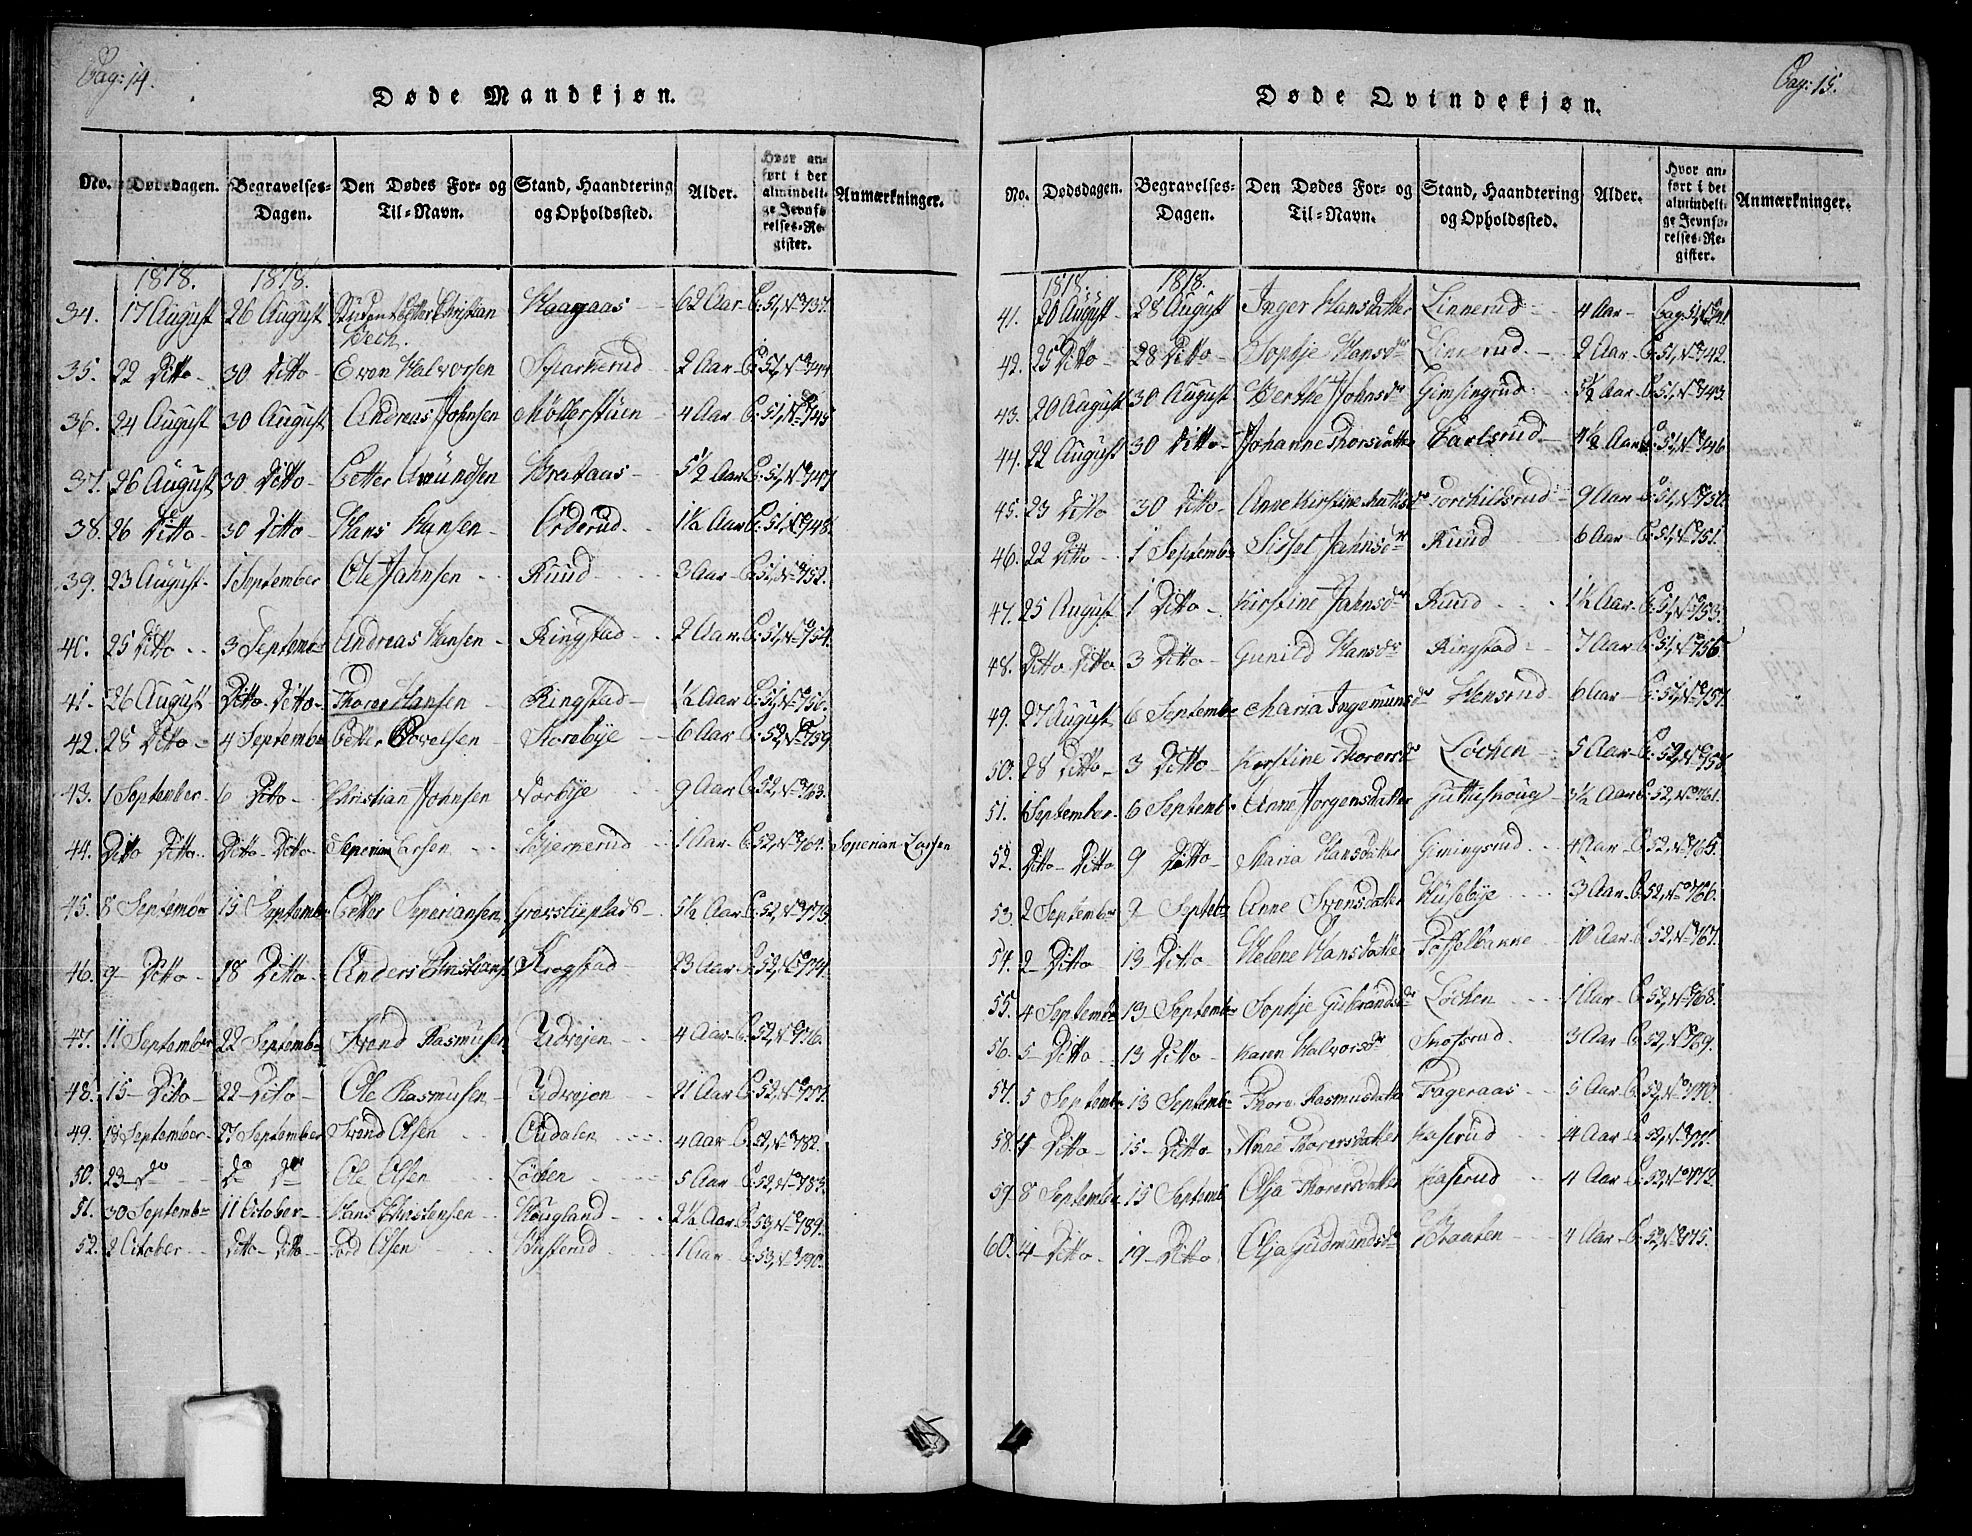 Pag: 14.
Døde Mandkjøn.
No. Dødsdagen. Begravelses-Dagen. Den Dødes For- og Til-Navn. Stand, Haandtering og Opholdssted. Alder. Hvor anført i det almindelige Jevnførelses-Register. Anmærkninger.
1818. 1818.
34. 17 August 26 August Petter Christian Bech. Haagaas 62 Aar P: 51, No 737.
35. 22 Ditto 30 Ditto Even Halvorsen Sparkerud 2 Aar P: 51, No 744
36. 24 August 30 August Andreas Johnsen Möllerstüen 4 Aar P: 51, No 745
37. 26 August 30 Ditto Petter Amündsen Brataas 5½ Aar P: 51, No 747
38. 26 Ditto 30 Ditto Hans Hansen Orderüd 1½ Aar P: 51, No 748.
39. 23 August 1 September Ole Jahnsen Rüüd 3 Aar P: 51, No 752.
40. 25 Ditto 3 September Andreas Hansen Ringstad 2 Aar P: 51, No 754.
41. 26 August Ditto Ditto Thorer Hansen Ringstad ½ Aar P: 51, No 756.
42. 28 Ditto 4 September Petter Povelsen Storebÿe 6 Aar P: 52, No 759
43. 1 September 6 Ditto Christian Johnsen Norbÿe 9 Aar P: 52, No 763.
44. Ditto Ditto Ditto Ditto Seperian Larsen Bjernerüd 1 Aar P: 52, No 764. Seperian Larsen
45. 8 September 15 September Petter Seperiansen Grevslieplads 5½ Aar P: 52, No 773.
46. 9 Ditto 18 Ditto Anders Christians: Krogstad 23 Aar P: 52, No 774.
47. 11 September 22 September Svend Rasmüsen Udvejen 4 Aar P: 52, No 776.
48. 15 Ditto 22 Ditto Ole Rasmusen Udvejen 21 Aar P: 52, No 777.
49. 18 September 27 September Svend Olsen Oudalen 4 Aar P: 52, No 782.
50. 23 Do Do Do Ole Olsen Löchen 5 Aar P: 52, No 783.
51. 30 September 11 October Hans Christensen Hougland 2½ Aar P: 53, No 789.
52. 2 October Ditto Ditto Tord Olsen Husterud 1 Aar P: 53, No 790.
Pag: 15.
Døde Qvindekjøn.
No. Dødsdagen. Begravelses-Dagen. Den Dødes For- og Til-Navn. Stand, Haandtering og Opholdssted. Alder. Hvor anført i det almindelige Jevnførelses-Register. Anmærkninger.
1818. 1818.
41. 20 August 28 August Inger Hansdatter Linnerüd 4 Aar Pag: 51, No 741
42. 25 Ditto 28 Ditto Sophje Hansdr Linnerud 2 Aar P: 51, No 742.
43. 20 August 30 August Berthe Johnsdr Gimsingrud 5½ Aar P: 51, No 743.
44. 22 August 30 Ditto Johanne Thorsdatter Carlsrüd 4½ Aar P: 51, No 746
45. 23 Ditto 30 Ditto Anne Kirstine Mathisdr Torchildsrud 9 Aar P: 51, No 750.
46. 22 Ditto 1 September Sissel Jahnsdr Rüüd 6 Aar P: 51, No 751.
47. 25 August 1 Ditto Kirstine Jahnsdr Rüüd 1½ Aar P: 51, No 753.
48. Ditto Ditto 3 Ditto Gunild Hansdr Ringstad 7 Aar P: 51, No 755
49. 27 August 6 September Maria Ingemunsdr Hensrud 6 Aar P: 51, No 757.
50. 28 Ditto 3 Ditto Kirstine Thorersdr Löchen 5 Aar P: 52, No 758
51. 1 September 6 Septemb. Anne Jorgensdatter 3½ Aar P: 52, No 761.
52. Ditto Ditto 9 Ditto Maria Hansdatter Gimingsrud 4 Aar P: 52, No 765.
53. 2 September 9 Septebr Anne Svensdatter Hüsebÿe 3 Aar P: 52, No 766.
54. 2 Ditto 13 Ditto Helene Hansdatter Toffelbanne 10 Aar P: 52, No 767.
55. 4 September 13 September Sophje Gubrandsdr Löchen 1 Aar P: 52, No 768.
56. 5 Ditto 13 Ditto Karen Halvorsdr Skofsrud 3 Aar P: 52, No 769.
57. 5 September 13 September Thore Rasmusdatter Fageraas 5 Aar P: 52, No 770.
58. 4 Ditto 15 Ditto Anne Thorersdatter Kaserüd 14 Aar P: 52, No 771.
59. 8 September 15 Septemb Olja Thorersdatter Kaserud 4 Aar P: 52, No 772.
60. 14 Ditto 19 Ditto Olja Gudmundsdr Braaten 4 Aar P: 52, No 775.